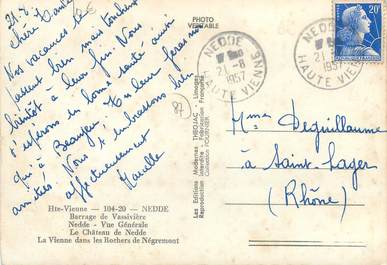 21-8-
Chère Tante
Nos vacances se
passent bien mais tombent
bientôt à leur fin. Nous
espérons en bonne santé, ainsi
qu'à Beaujeu.
amitiés. Nous 4 embrassons bien
affectueusement
87
PHOTO
VERITABLE
NEDDE
21 -8
1957
HAUTE VIENNE
NEDDE
21 -8
1957
HAUTE VIENNE
20F
Les Editions Modernes THEOJAC - Limoges
Reproduction Interdite - Fabrication Française
Mme Deguillaume
à Saint-Lager
(Rhône)
Hte-Vienne — 104-20 — NEDDE
Barrage de Vassivière
Nedde - Vue Générale
Le Château de Nedde
La Vienne dans les Rochers de Négremont